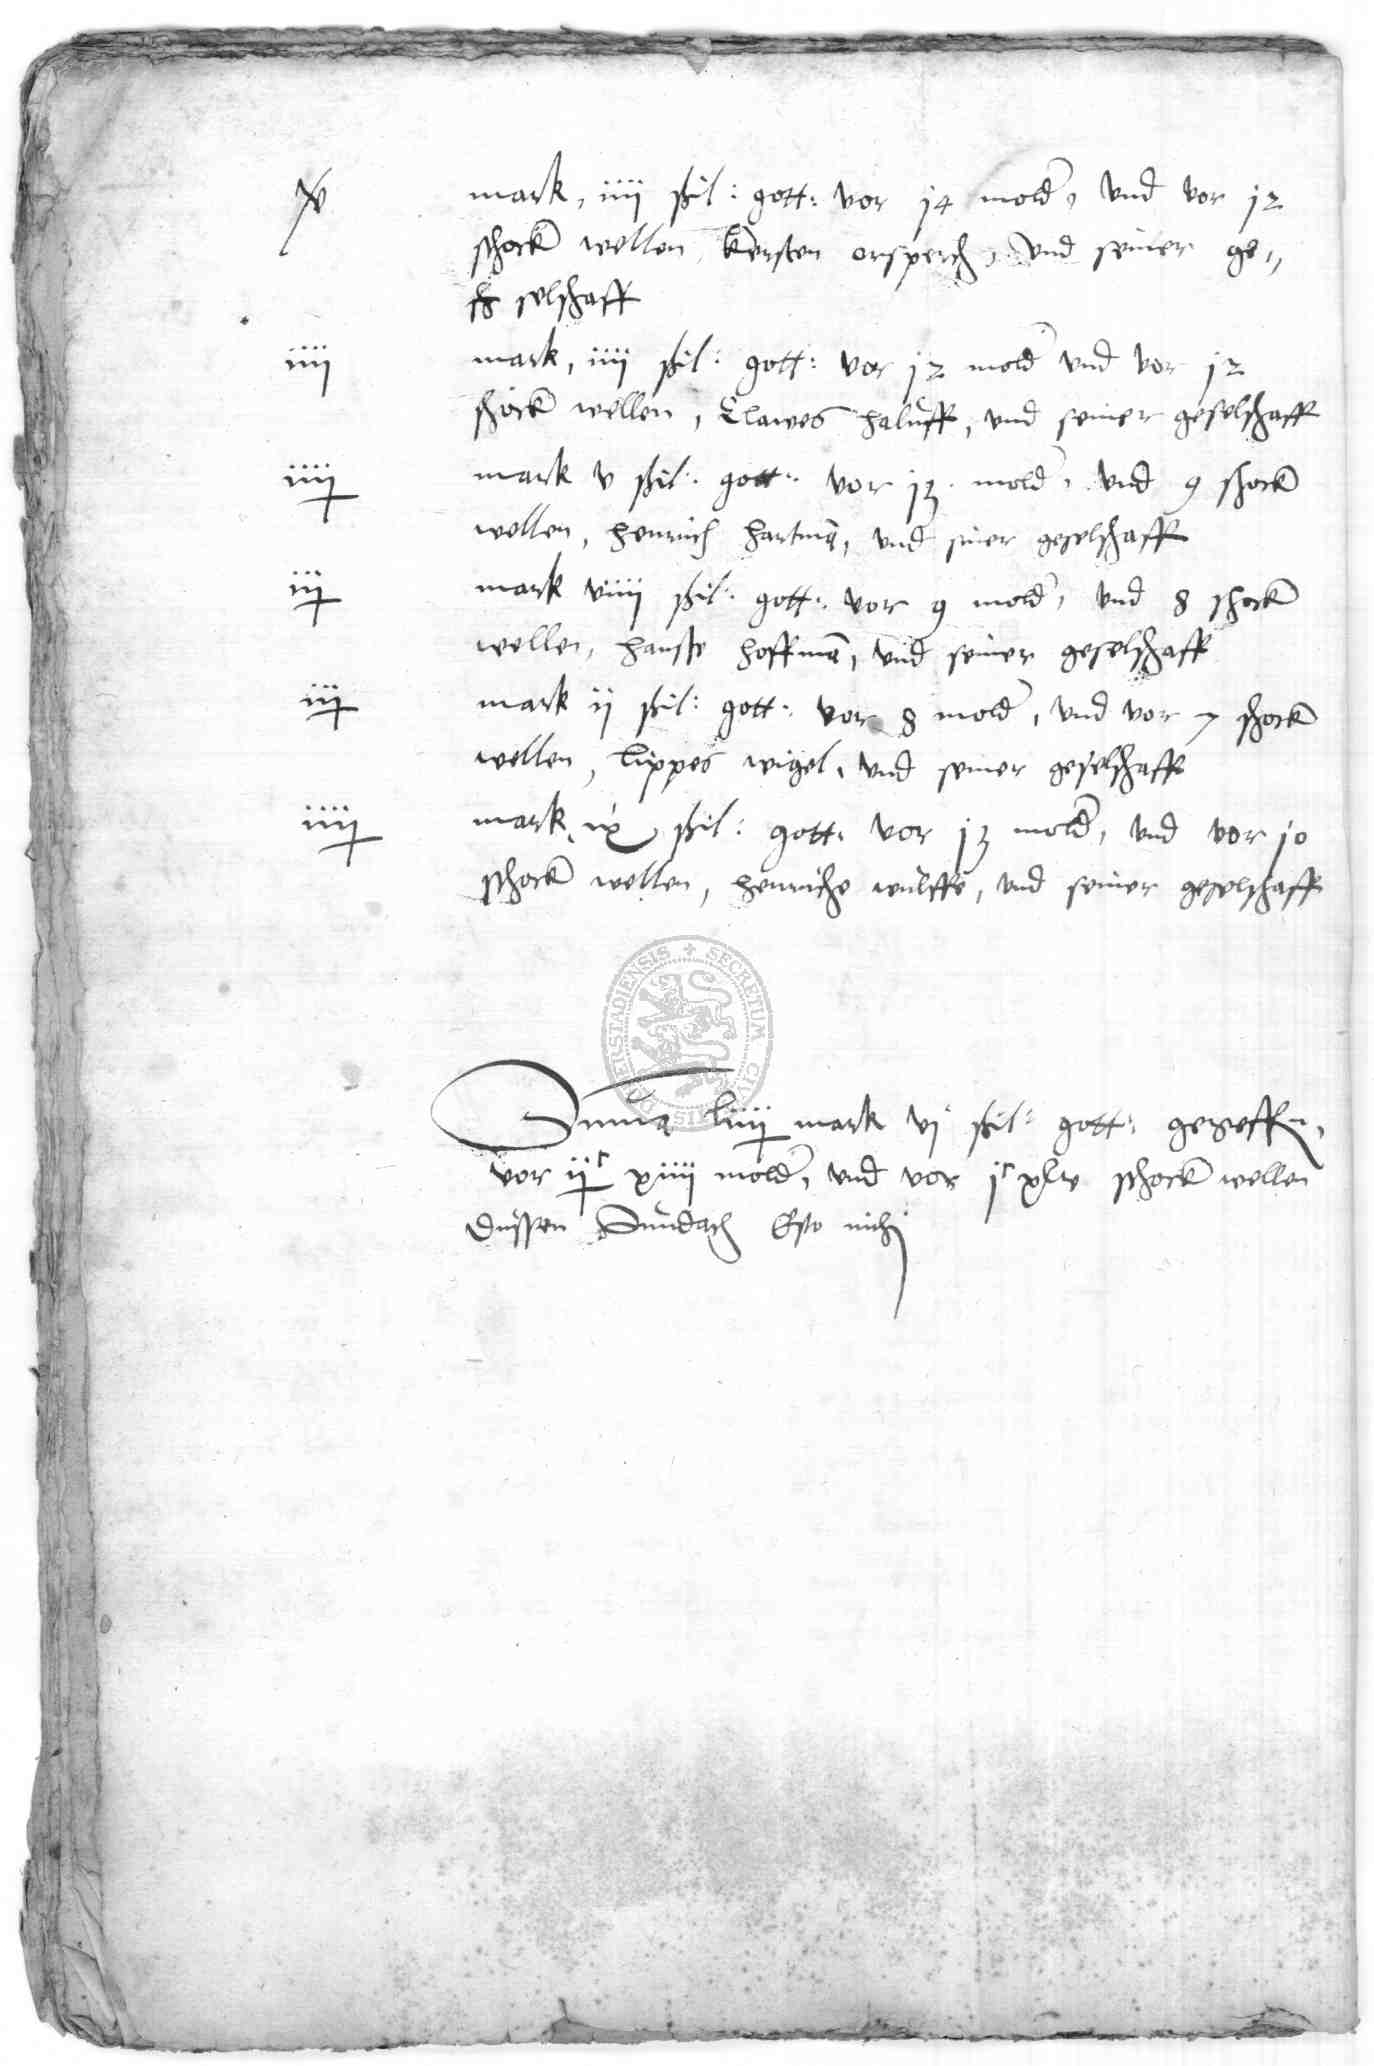 v mark, iiii ßil: gott: vor 14 mold, und vor 12
schock wellen, kersten orsperch, und seiner ge„
selschaff
iiii mark, iiii ßil: gott: vor 12 mold und vor 12
schock wellen, Clawes haluff, und seiner geselschaff
iiii mark v ßil: gott: vor 13 mold, und 9 schock
wellen, henrich hartma, und siner geselschaff
iii mark viiii ßil: gott: vor 9 mold, und 8 schock
wellen, hanße hoffma, und seiner geselschaff
iii mark ii ßil: gott: vor 8 mold, und vor 7 schock
wellen, lippes wigel, und seiner geselschaff
iiii mark ix ßil: gott: vor 13 mold, und vor 10
schock wellen, henriche wulffe, und seiner geselschaff
SECRETUM CIVITATIS DUDERSTADIENSIS
Suma liiii mark vj ßil: gott: gegeffen,
vor ii c xiiii mold, und vor j c xlv schock wellen
dussen Sundach Esto michj